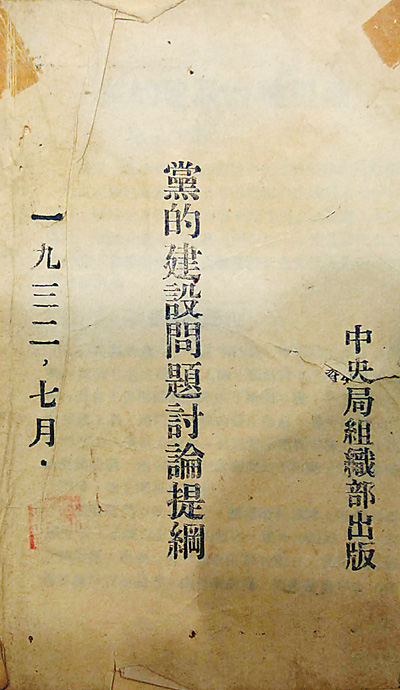 中央局組織部出版
黨的建設問題討論提綱
一九三二，七月．